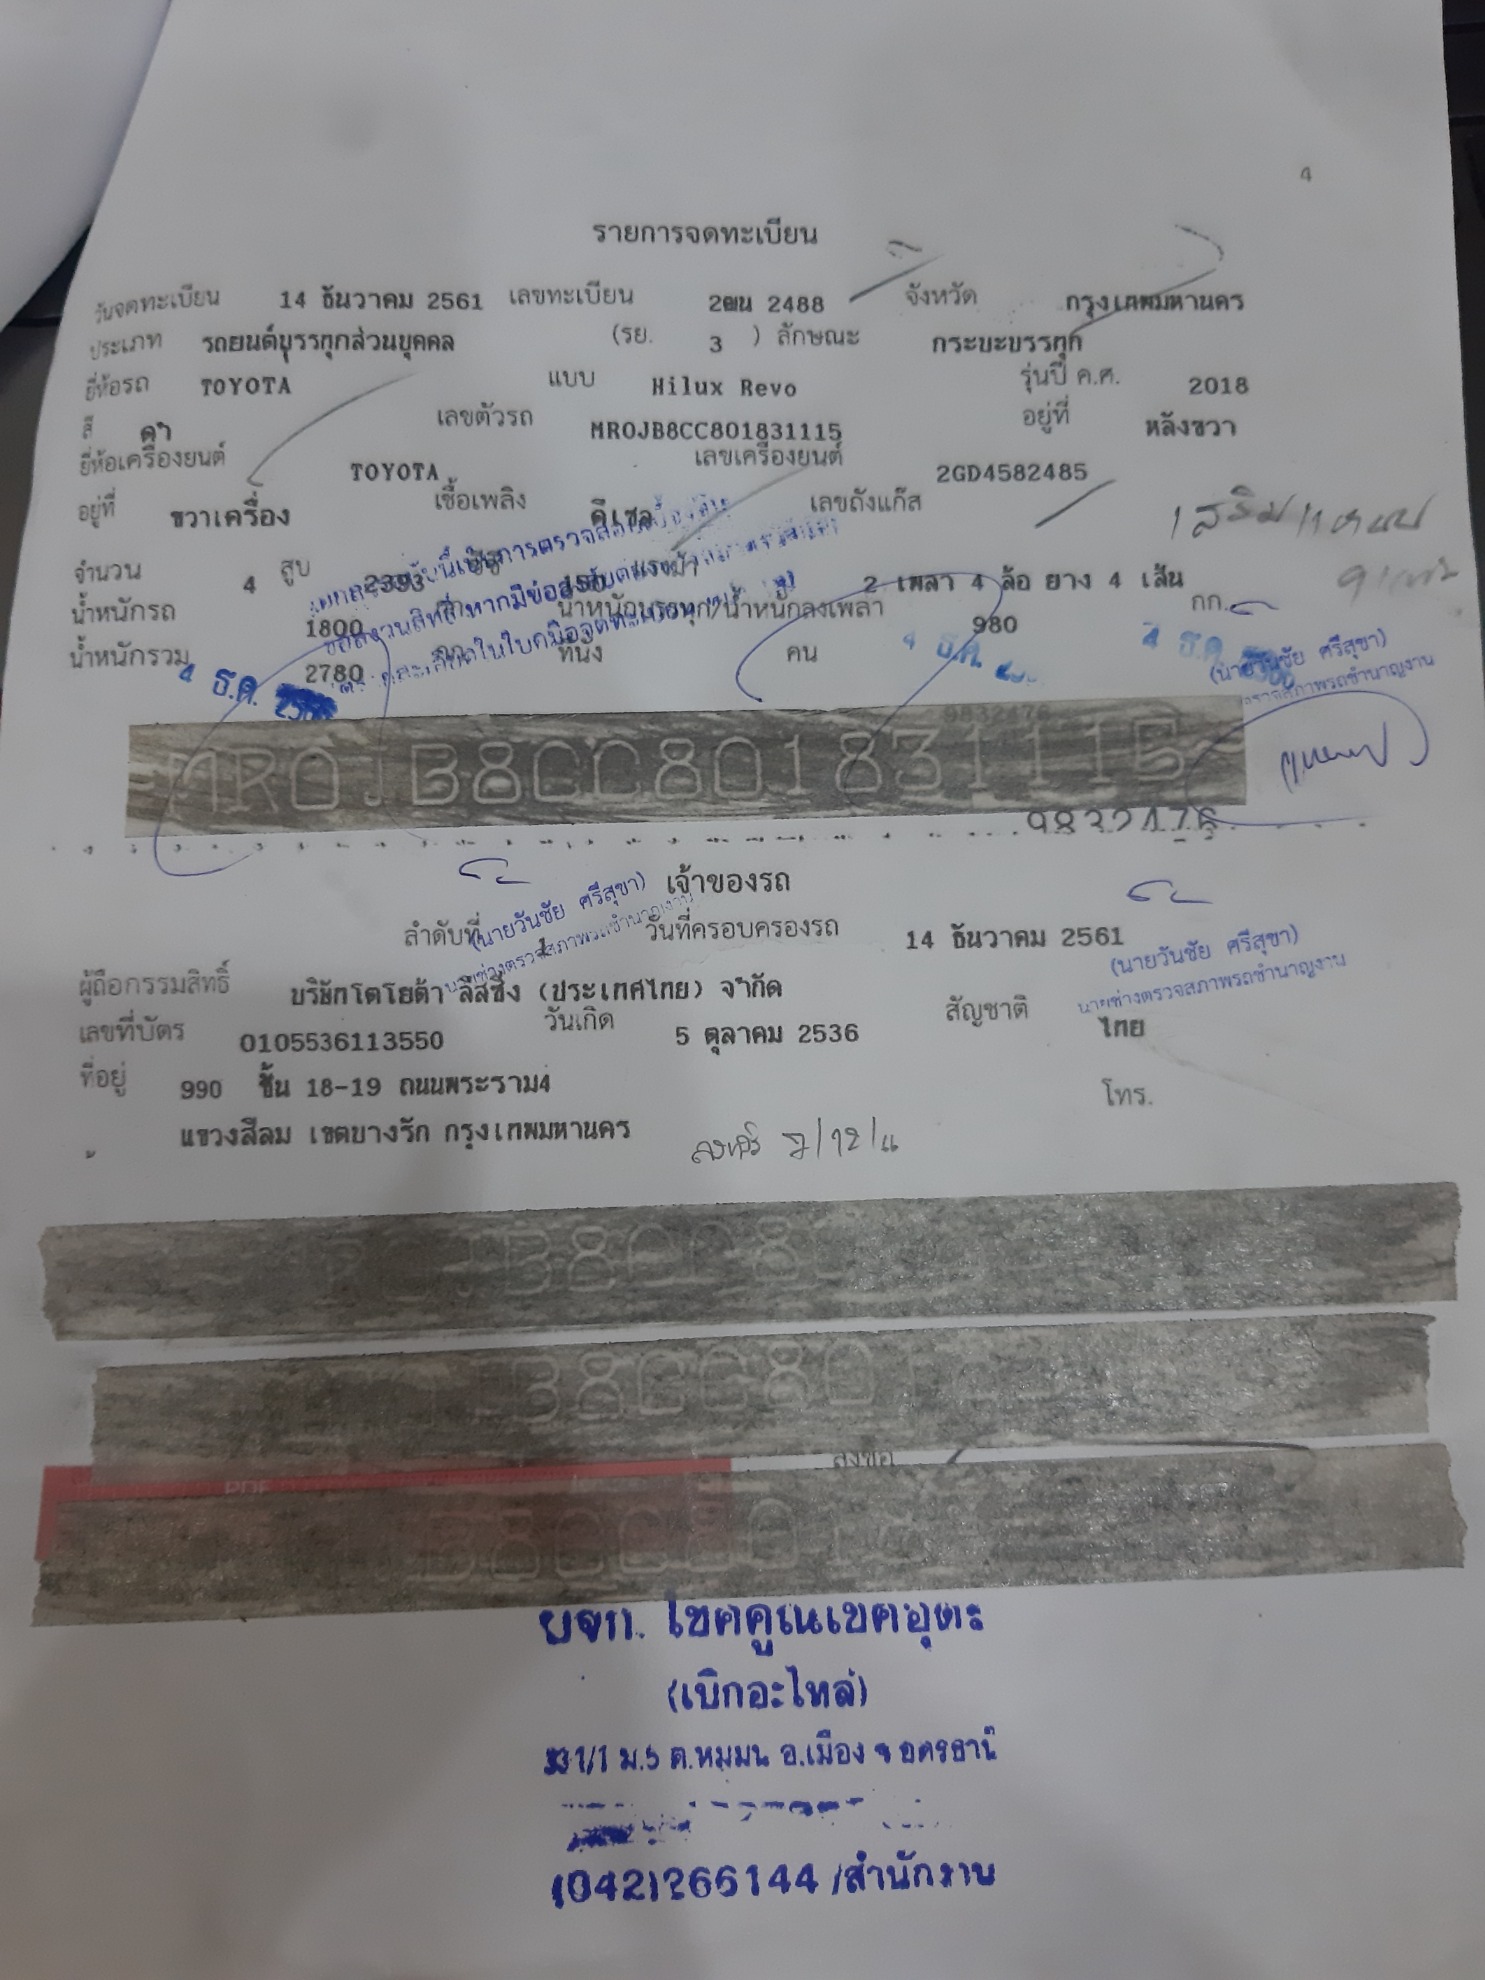 4
รายการจดทะเบียน
วันจดทะเบียน 14 ธันวาคม 2561 เลขทะเบียน 2ฒน 2488 จังหวัด กรุงเทพมหานคร
ประเภท รถยนต์บรรทุกส่วนบุคคล (รย. 3 ) ลักษณะ กระบะบรรทุก
ยี่ห้อรถ TOYOTA แบบ Hilux Revo รุ่นปี ค.ศ. 2018
สี ดำ เลขตัวรถ MR0JB8CC801831115 อยู่ที่ หลังขวา
ยี่ห้อเครื่องยนต์ TOYOTA เลขเครื่องยนต์ 2GD4582485
อยู่ที่ ขวาเครื่อง เชื้อเพลิง ดีเซล เลขถังแก๊ส
จำนวน 4 สูบ 2393 ซีซี 150 แรงม้า 2 เพลา 4 ล้อ ยาง 4 เส้น
น้ำหนักรถ 1800 กก. น้ำหนักบรรทุก/น้ำหนักลงเพลา 980 กก.
น้ำหนักรวม 2780 กก. ที่นั่ง คน
4 ธ.ค. 4 ธ.ค. 4 ธ.ค.
(นายวันชัย ศรีสุขา)
นายช่างตรวจสภาพรถชำนาญงาน
MR0JB8CC801831115
9832476
เจ้าของรถ
(นายวันชัย ศรีสุขา)
นายช่างตรวจสภาพรถชำนาญงาน
ลำดับที่ 1 วันที่ครอบครองรถ 14 ธันวาคม 2561
(นายวันชัย ศรีสุขา)
นายช่างตรวจสภาพรถชำนาญงาน
ผู้ถือกรรมสิทธิ์ บริษัทโตโยต้า ลีสซิ่ง (ประเทศไทย) จำกัด
เลขที่บัตร 0105536113550 วันเกิด 5 ตุลาคม 2536 สัญชาติ ไทย
ที่อยู่ 990 ชั้น 18-19 ถนนพระราม4 โทร.
แขวงสีลม เขตบางรัก กรุงเทพมหานคร
R0JB8CC80
JB8CC801
ลงชื่อ
PDF
B8CC80
หจก. โชคคูณเขตอุดร
(เบิกอะไหล่)
331/1 ม.5 ต.หมูม่น อ.เมือง จ.อุดรธานี
(042)266144 /สำนักงาน